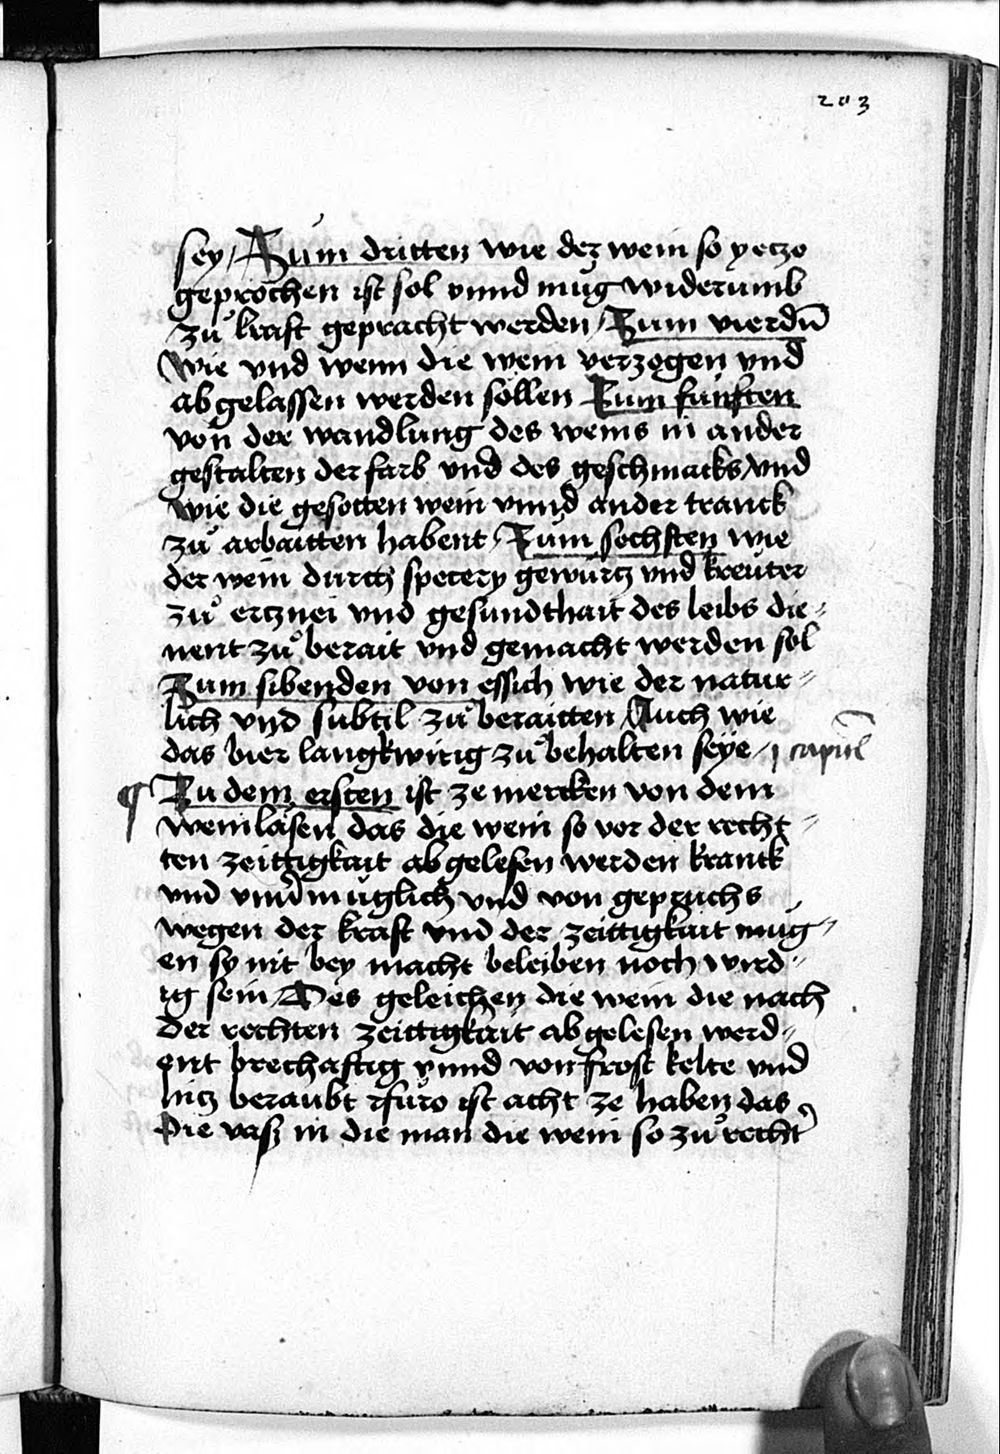 203
sey / Zum dritten wie der wein so yetzo
geprochen ist sol vnnd mug widerumb
zuͦ kraft gepracht werden / Zum vierdn̄
Wie vnd wenn die wein verzogen vnd
abgelassen werden söllen Zum funften
von der wandlung des weins in ander
gestalten der farb vnd des geschmacks / vnd
wie die gesotten wein vnnd ander tranck
zuͦ arbaitten habent / Zum sechsten wie
der wein durch specery gewürtz vnd kreüter
zuͦ ertznei vnd gesundthait des leibs die⸗
nent zuͦ berait vnd gemacht werden sol
Zum sibenden von essich wie der natur⸗
lich vnd subtil zuͦ beraitten / Auch wie
das bier langkwirig zuͦ behalten seye / j capitel
¶ Zu dem ersten ist ze mercken von dem
weinlasen das die wein so vor der recht⸗
ten zeittigkait abgelesen werden kranck
vnd vnuermüglich vnd von gepruchs
wegen der kraft vnd der zeittigkait müg⸗
en sy nit bey macht beleiben noch wird⸗
ig sein / Des geleichen die wein die nach
der rechten zeittigkait abgelesen werd⸗
ent brechaftig vnnd von frost kelte vnd
hitz beraubt ist acht ze haben das
die vasz in die man die wein so zuͦ recht